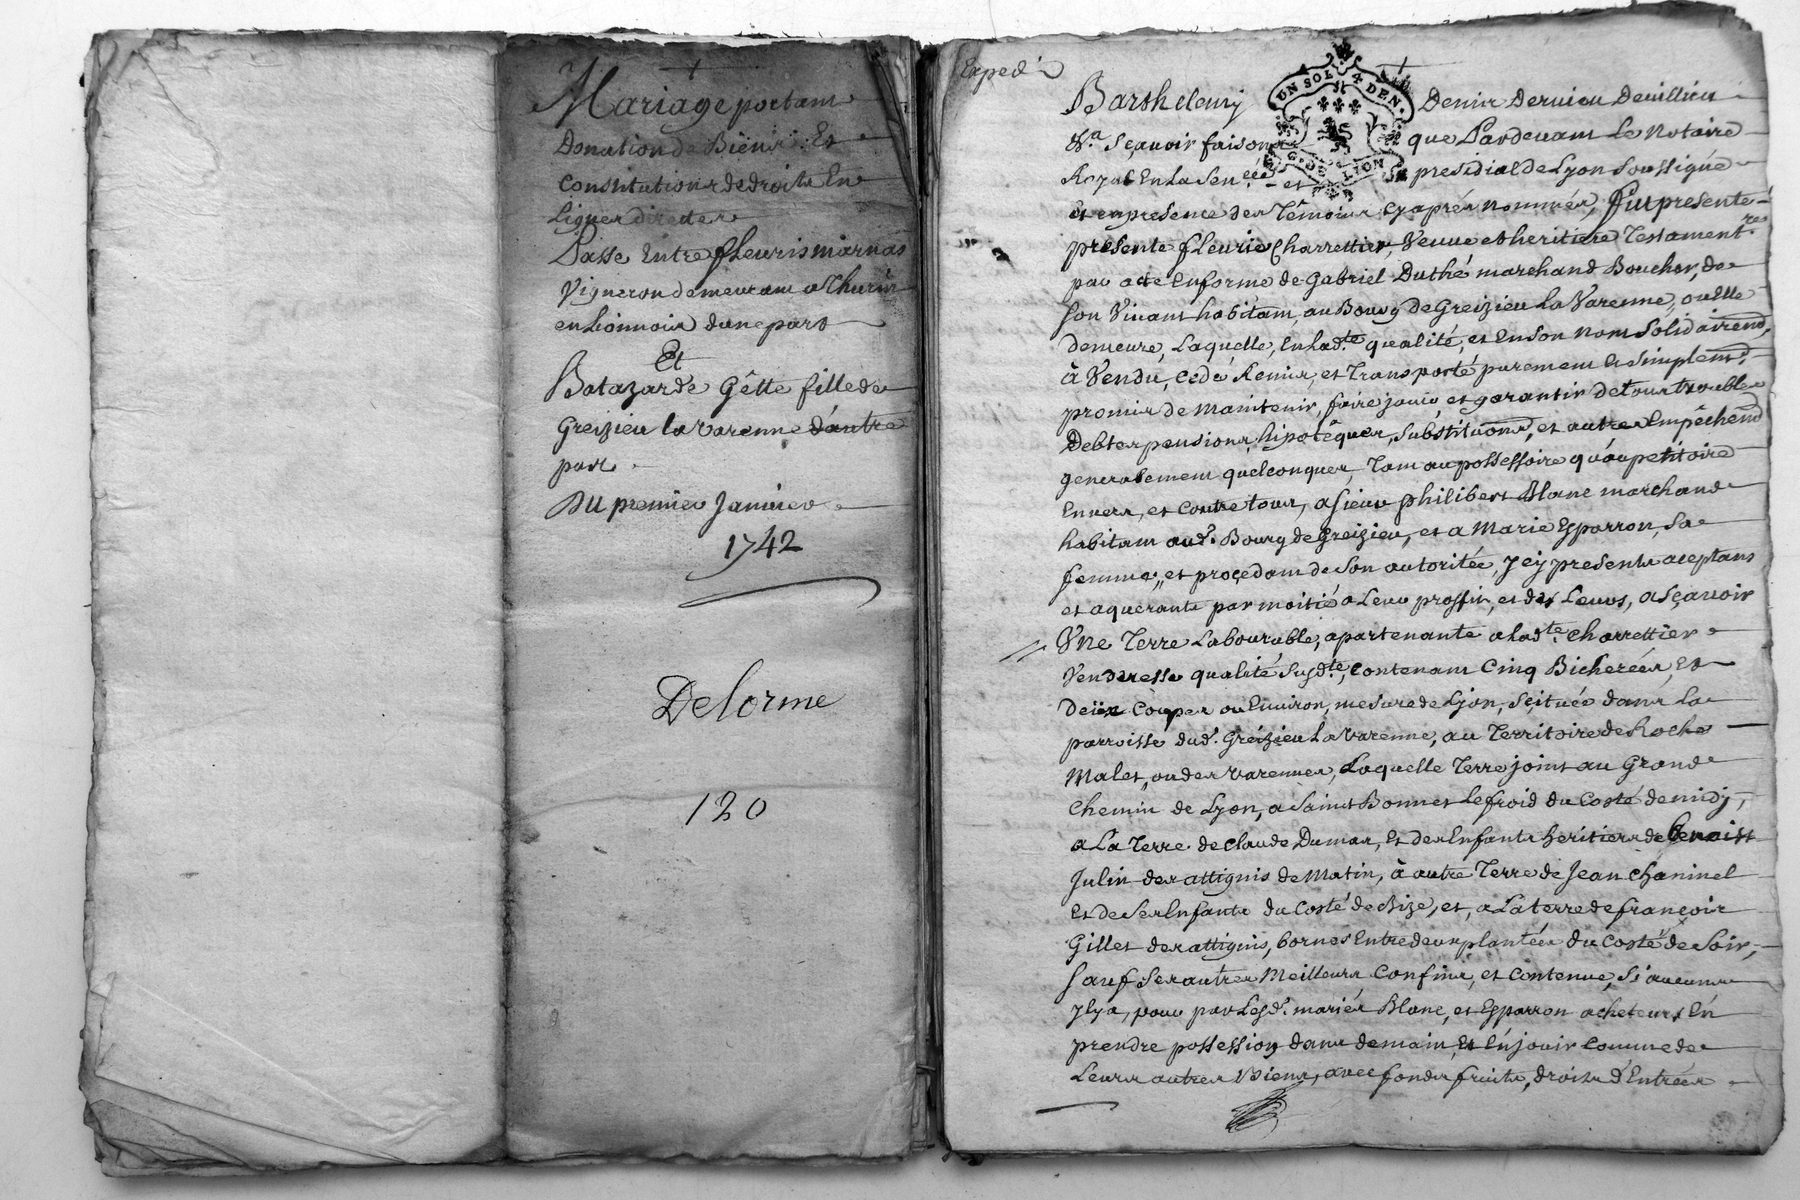 Mariage portant
Donation de Biens Et
Constitutions de droits En
Ligner directe
Passé Entre fleuris marnas
Vigneron demeurant a Thurins
en Lionnois dune part
Et
Batazarde Gêtte fille de
Greizieu la Varenne d'autre
part
Du premier Janvier
1742
Delorme
120
Exped
Barthelemy Denis Dervieu Devillieu
&.a Sçavoir faisons que Pardevant Le Notaire
Royal En La Senéée et presidial de Lyon Soussigné
et en presence des Témoins cy aprés nommés, fut presente
présente fleurie Charrettier, Veuve et heritiere Testament.re
par acte En forme de Gabriel Duthé marchand Boucher, de
Son Vivant habitant, au Bourg de Greizieu La Varenne, ou Elle
demeure, Laquelle, En lad.te qualité, et En Son nom Solidairemd,
à Vendu, Cedé Remis, et Transporté purement et Simplemd.
promis de maintenir, faire jouir et garantir de tous troubles
Debtes pensions hipotêques, Substituons, et autres Empêchemd
generalement quelconques, Tant au possessoire qu'au petitoire
Envers, et Contre tous, a Sieur philibert Blanc marchand
habitant aud. Bourg de Greizieu, et a Marie Esparron, Sa
femme, et proçedant de Son autoritée, Jcy presents aceptans
et aquerants par moitié a Leur proffit, et des Leurs, a Sçavoir
Vne Terre Labourable, apartenante a Lad.te Charrettier
Venderesse qualité Susd.te, Contenant Cinq Bicherées, Et
Deux Coupes ou Environ, mesure de Lyon, Scituée dans La
parroisse dud. Greizieu La Varenne, au Territoire de Roche
Malet, ou des Varennes, Laquelle Terre joint au Grand
Chemin de Lyon, a Saint Bonnet Lefroid du Costé de midy,
a La Terre de Claude Dumas, Et des Enfants heritiers de Benoist
Julin des attignis de Matin, à autre Terre de Jean Chaninel
Et de Ses Enfants du Costé de Bize, et, a La terre de françois
Gillet des attignis, bornes Entre deux plantées du Costé de Soir,
Sauf Ses autres Meilleurs Confins, et Contenue, Si aucuns
Jlya, pour par Lesd. mariés Blanc, et Esparron acheteurs En
prendre possession dans demain, Et En jouir Comme de
Leurs autres Biens, avec fonds fruits, droits d'Entrées
UN SOL 4 DEN.
G. DE LION